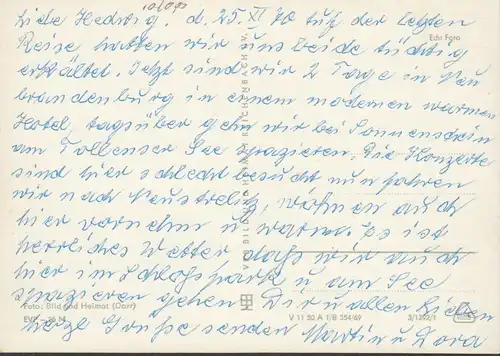 Liebe Hedwig! d. 25. XI 70 Auf der letzten
Reise hatten wir uns beide tüchtig
Echt Foto
erkältet. Jetzt sind wir 2 Tage in Neu
brandenburg in einem modernen warmen
Hotel, tagsüber gehn wir bei Sonnenschein
am Tollenser See spazieren. Die Konzerte
sind hier schlecht besucht nun fahren
wir nach Neustrelitz, wohnen auch
hier vornehm u warm. Es ist
herrliches Wetter daß wir auch
hier im Schloßpark u am See
spazieren gehen Dir u allen Lieben
Foto: Bild und Heimat (Darr)
V 11 50 A 1/B 354/69
3/1392/1
herzl Grüße senden Martin u Dora
VEB BILD REICHENBACH i. V.